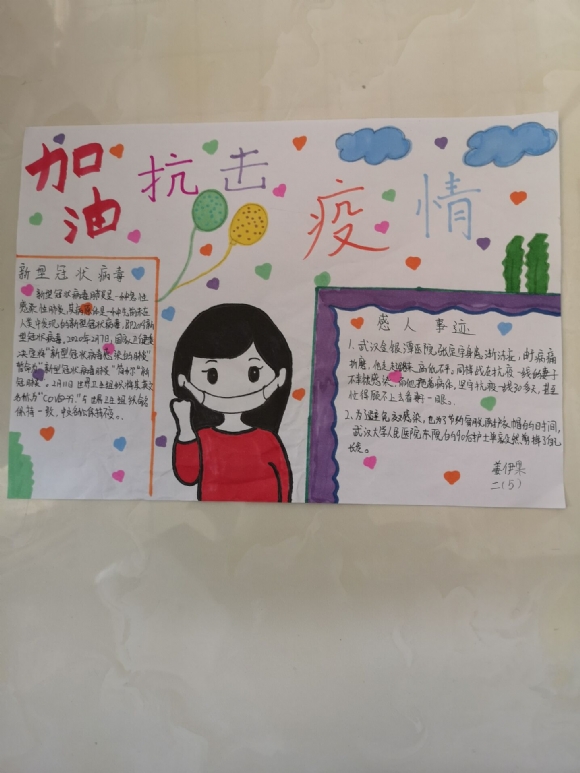 加油
抗击
疫情
新型冠状病毒
新型冠状病毒肺炎是一种急性
感染性肺炎,其病原体是一种先前未在
人类中发现的新型冠状病毒,即2019新
型冠状病毒。2020年2月7日,国家卫健委
决定将"新型冠状病毒感染的肺炎"
暂命名"新型冠状病毒肺炎"简称"新
冠肺炎"。2月11日世界卫生组织将其英文
名称为"COVID-19."与世界卫生组织命名
保持一致,中文名称保持不变。
感人事迹
1、武汉金银潭医院张定宇身患渐冻症,时病痛
折磨,
不幸被感染。而他拖着病体,坚守抗疫一线30多天,甚至
忙得顾不上去看妻一眼。
2、为避免交叉感染,也为了节约穿脱防护衣帽的时间,
武汉大学人民医院东院的90后护士单霞剃掉了自己
长发。
二(5)